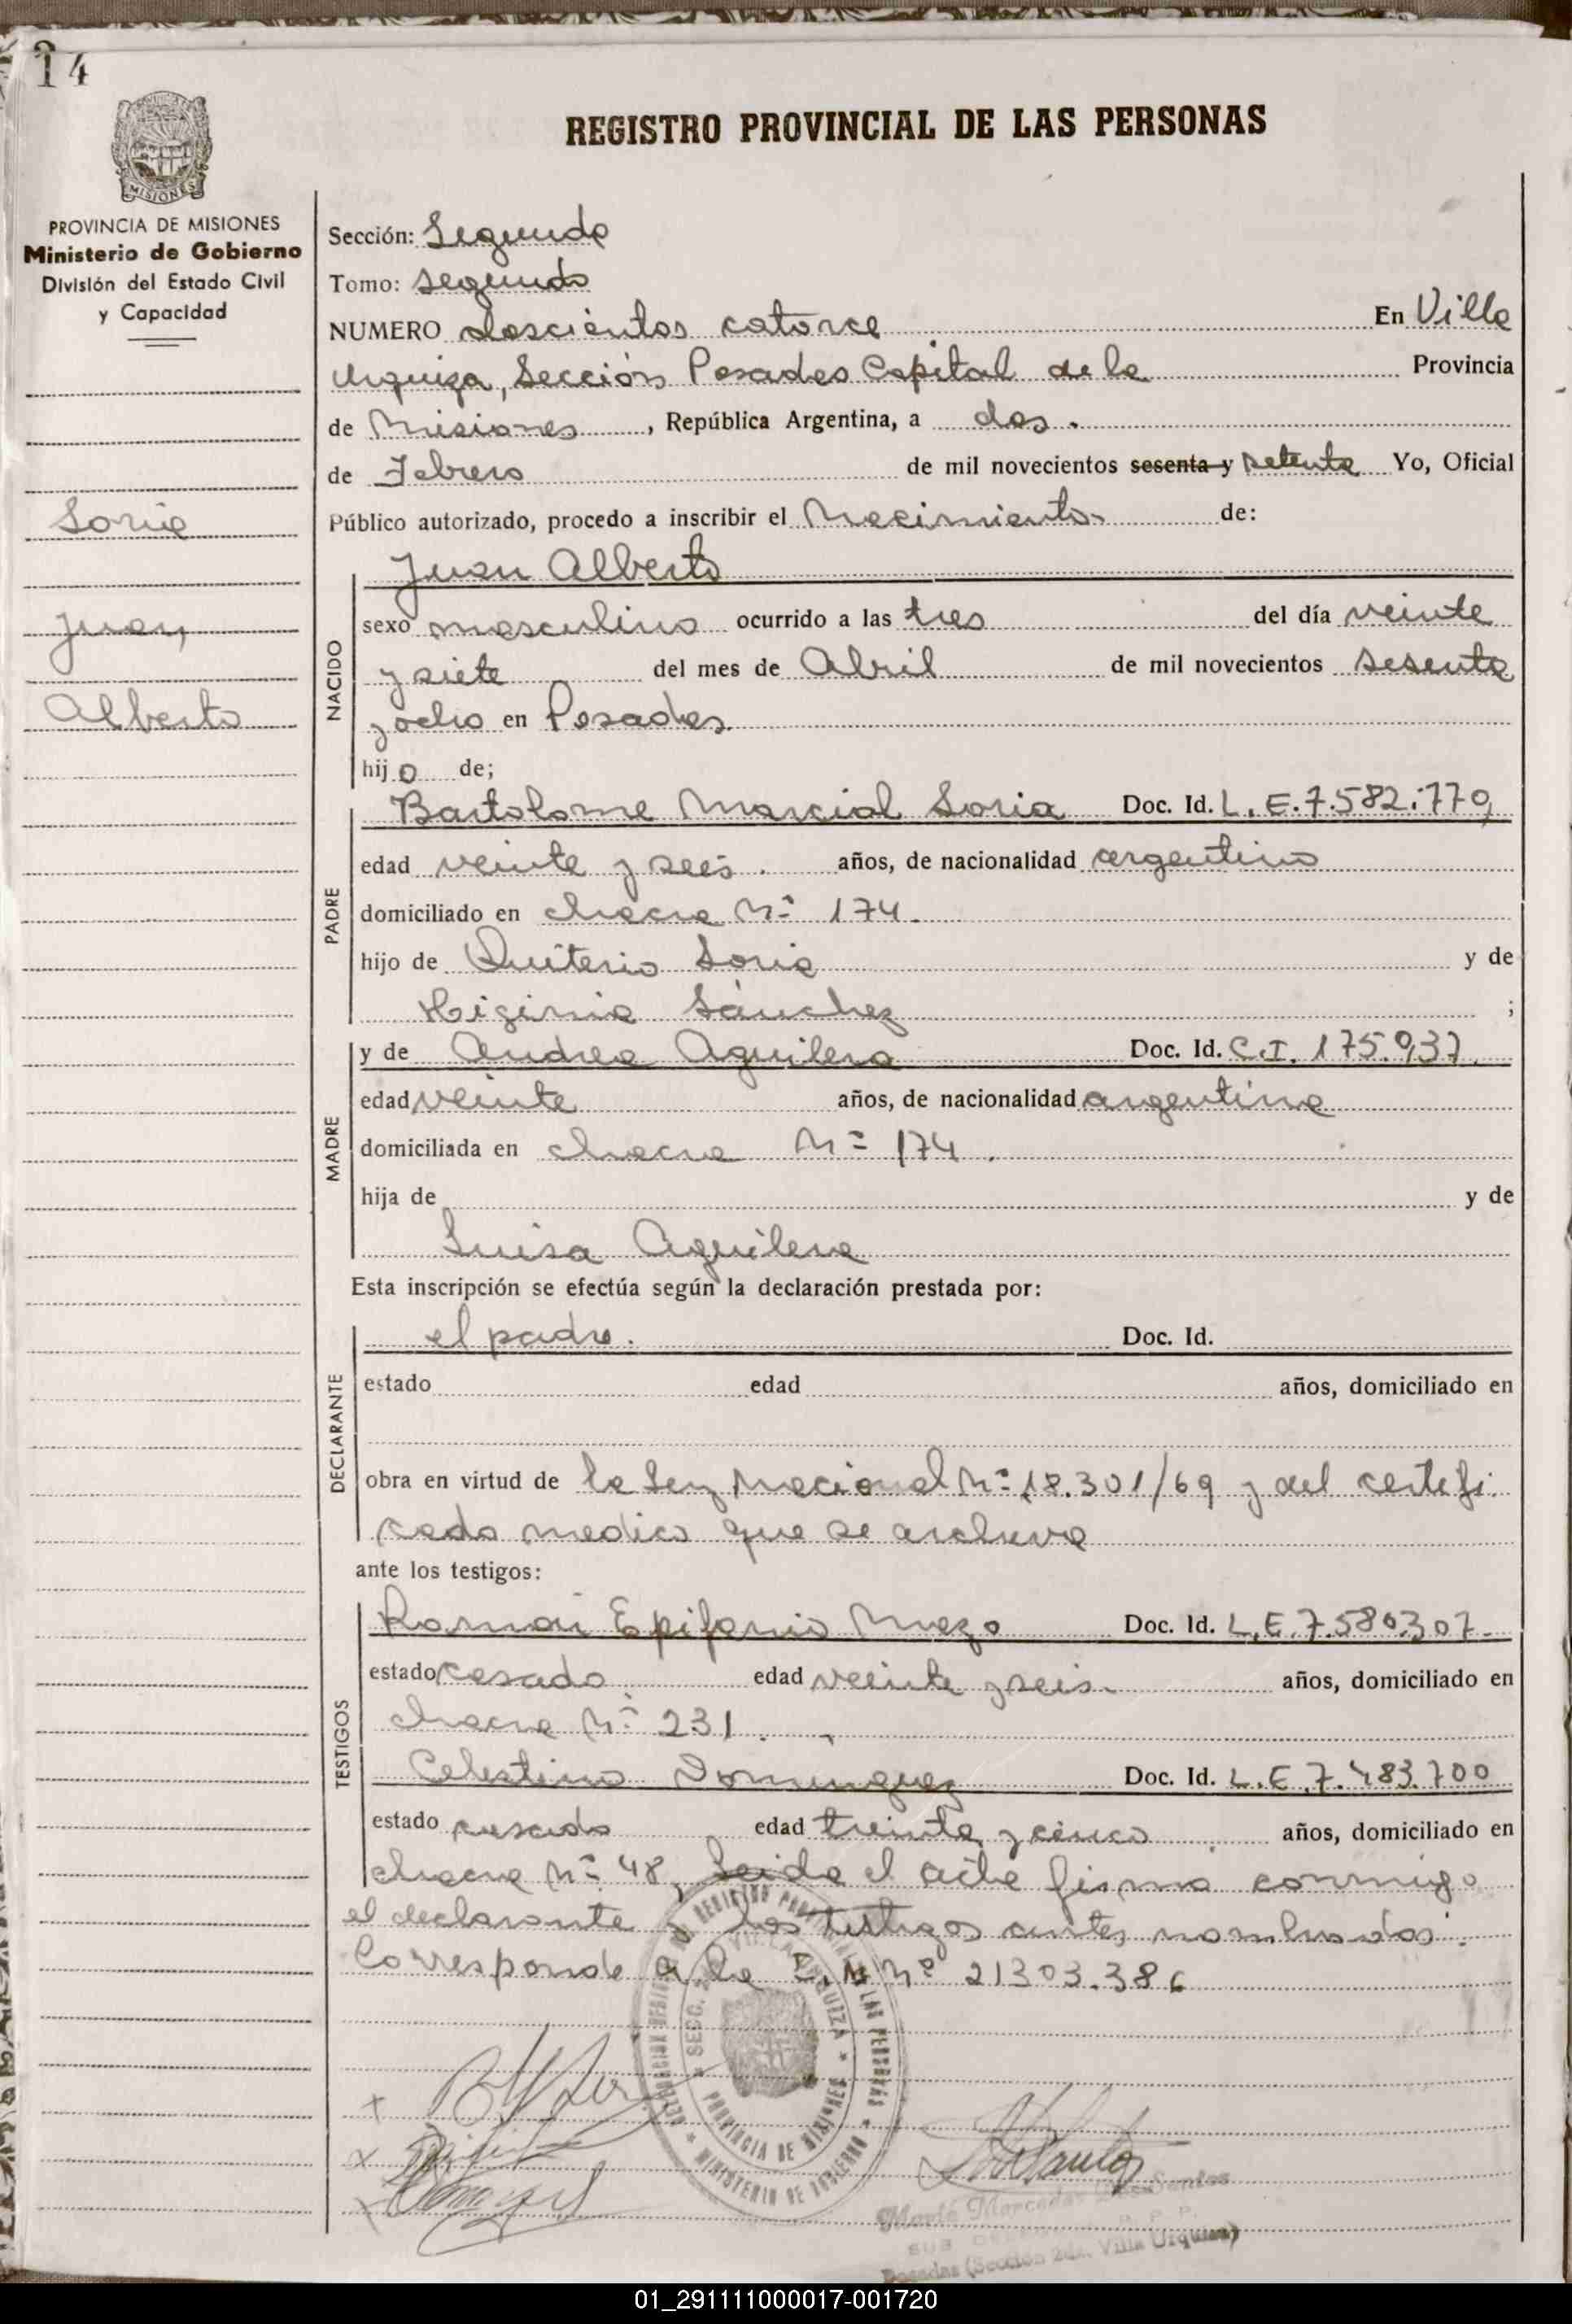 14
REGISTRO PROVINCIAL DE LAS PERSONAS
MISIONES
PROVINCIA DE MISIONES
Ministerio de Gobierno
División del Estado Civil
y Capacidad
Soria
Juan
Alberto
Sección: Segunda
Tomo: segundo
NUMERO doscientos catorce En Villa
Urquiza, Sección Posadas Capital de la Provincia
de Misiones, República Argentina, a dos.
de Febrero de mil novecientos sesenta y setenta Yo, Oficial
Público autorizado, procedo a inscribir el Nacimiento de:
Juan Alberto
NACIDO
sexo masculino ocurrido a las tres del día veinte
y siete del mes de Abril de mil novecientos sesenta
y ocho en Posadas.
hijo de;
PADRE
Bartolome Marcial Soria Doc. Id. L.E.7.582.770,
edad veinte y seis. años, de nacionalidad argentino
domiciliado en chacra Nº 174.
hijo de Quiterio Soria y de
Higinia Sánchez ;
MADRE
y de Andrea Aguilera Doc. Id. C.I. 175.937.
edad veinte años, de nacionalidad argentina
domiciliada en chacra Nº 174.
hija de y de
Luisa Aguilera
Esta inscripción se efectúa según la declaración prestada por:
DECLARANTE
el padre. Doc. Id.
estado edad años, domiciliado en
obra en virtud de la Ley Nacional Nº 18.301/69 y del certifi
cado medico que se archiva
ante los testigos:
TESTIGOS
Ramón Epifanio Doc. Id. L.E.7.580.307.
estado casado edad veinte y seis. años, domiciliado en
chacra Nº 231.
Celestino Dominguez Doc. Id. L.E.7.483.700
estado casado edad treinta y cinco años, domiciliado en
chacra Nº 48, Leida el acta firma conmigo
el declarante y los testigos antes nombrados.
Corresponde a la Nº 21303.386
SECC. 2da. VILLA URQUIZA
PROVINCIA DE MISIONES
MINISTERIO DE GOBIERNO
REGISTRO PROVINCIAL DE LAS PERSONAS
Santos
Posadas (Sección 2da. Villa Urquiza)
01_291111000017-001720